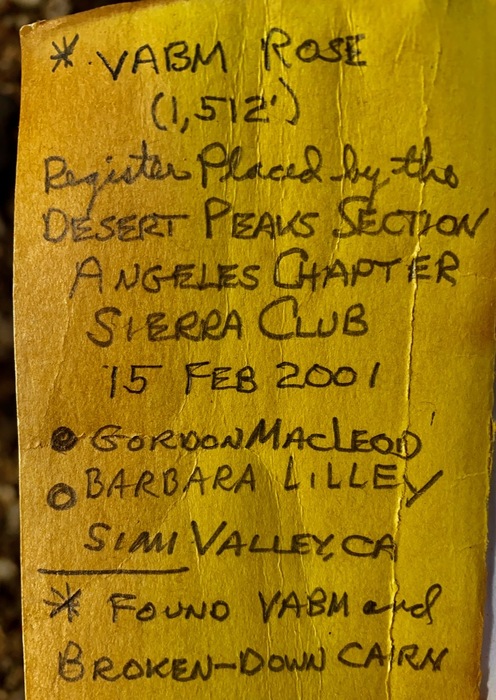 * VABM ROSE
(1,512')
Register Placed by the
DESERT PEAKS SECTION
ANGELES CHAPTER
SIERRA CLUB
15 FEB 2001
GORDON MACLEOD
BARBARA LILLEY
SIMI VALLEY, CA
* FOUND VABM and
BROKEN-DOWN CAIRN